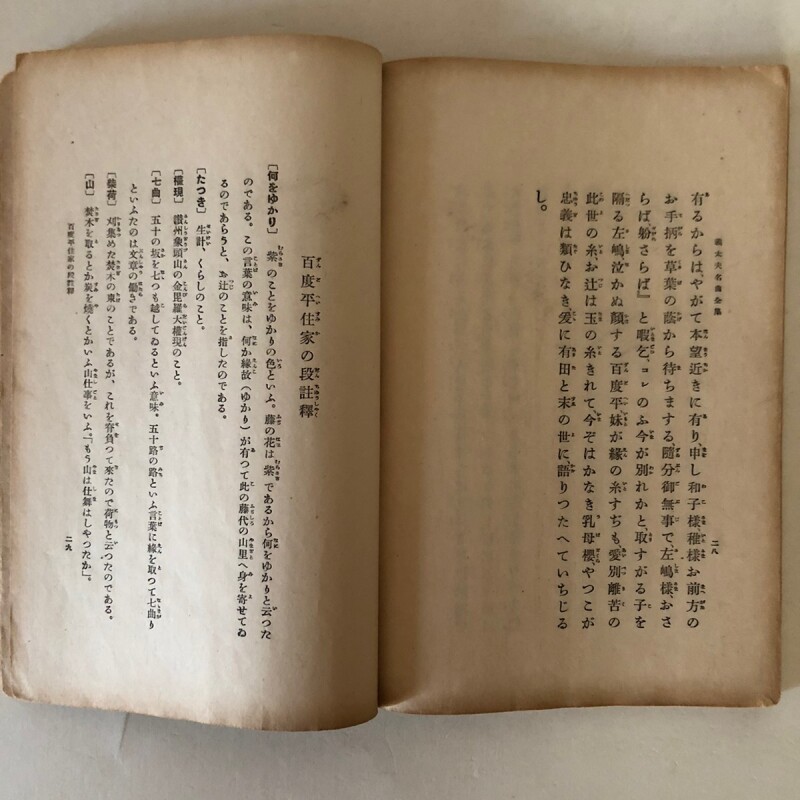 義太夫名曲全集
二八
有るからは、やがて本望近きに有り、申し和子樣、稚樣お前方の
お手柄を草葉の蔭から待ちまする、隨分御無事で左嶋樣、おさ
らば軈さらば』と暇乞、コレのふ今が別れかと、取すがる子を
隔る左嶋泣かぬ顏する百度平妹が緣の糸すぢも、愛別離苦の
此世の糸、お辻は玉の糸きれて今ぞはかなき乳母櫻、やつこが
忠義は類ひなき、爰に有田と末の世に、語りつたへていちじる
し。
百度平住家の段註釋
［何をゆかり］ 紫のことをゆかりの色といふ。藤の花は紫であるから何をゆかりと云つた
のである。この言葉の意味は、何か緣故（ゆかり）が有つて此の藤代の山里へ身を寄せてゐ
るのであらうと、お辻のことを指したのである。
［たつき］ 生計、くらしのこと。
［權現］ 讃州象頭山の金毘羅大權現のこと。
［七曲］ 五十の坂を七つも越してゐるといふ意味。五十路の路といふ言葉に緣を取つて七曲り
といふたのは文章の働きである。
［柴荷］ 刈集めた焚木の束のことであるが、これを脊負つて來たので荷物と云つたのである。
［山］ 焚木を取るとか炭を燒くとかいふ山仕事をいふ。「もう山は仕舞はしやつたか」。
百度平住家の段註釋
二九